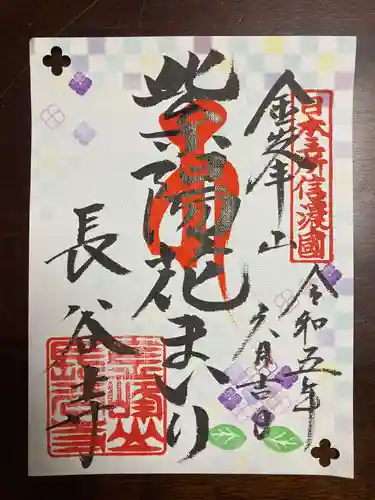 日本信濃國
金峯山
令和五年
六月吉日
紫陽花まいり
長谷寺